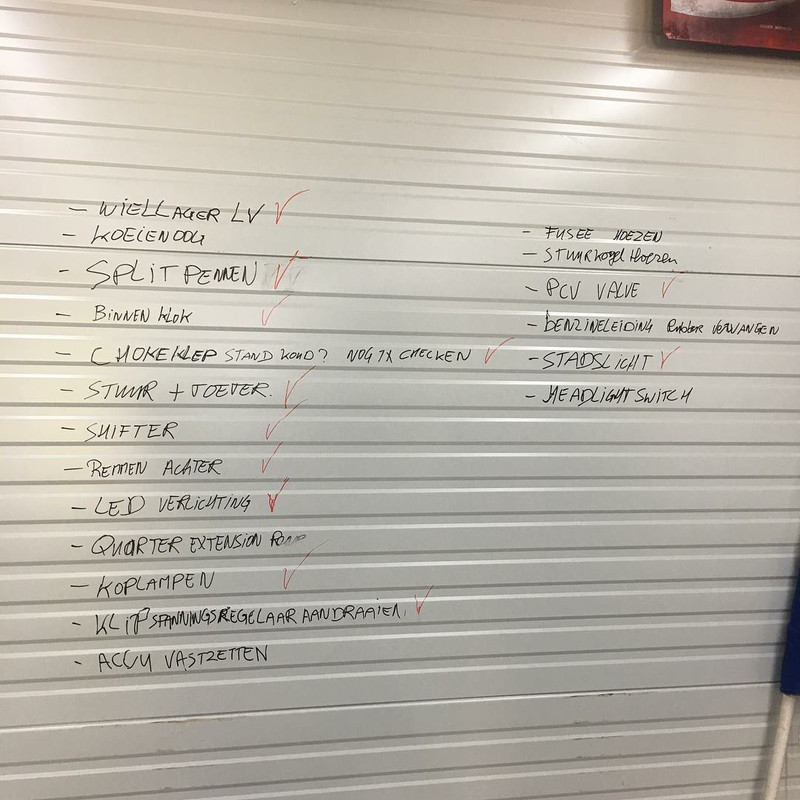 - WIELLAGER LV ✓
- KOEIENOOG
- SPLITPENNEN ✓
- BINNEN KLOK ✓
- CHOKEKLEP STAND KOUD? NOG 1X CHECKEN ✓
- STUUR + TOETER. ✓
- SHIFTER ✓
- REMMEN ACHTER ✓
- LED VERLICHTING ✓
- QUARTER EXTENSION
- KOPLAMPEN ✓
- KLIP SPANNINGSREGELAAR AANDRAAIEN. ✓
- ACCU VASTZETTEN
- FUSEE HOEZEN
- STUURKOGEL HOEZEN
- PCV VALVE ✓
- BENZINELEIDING RUBBER VERVANGEN
- STADSLICHT ✓
- HEADLIGHT SWITCH